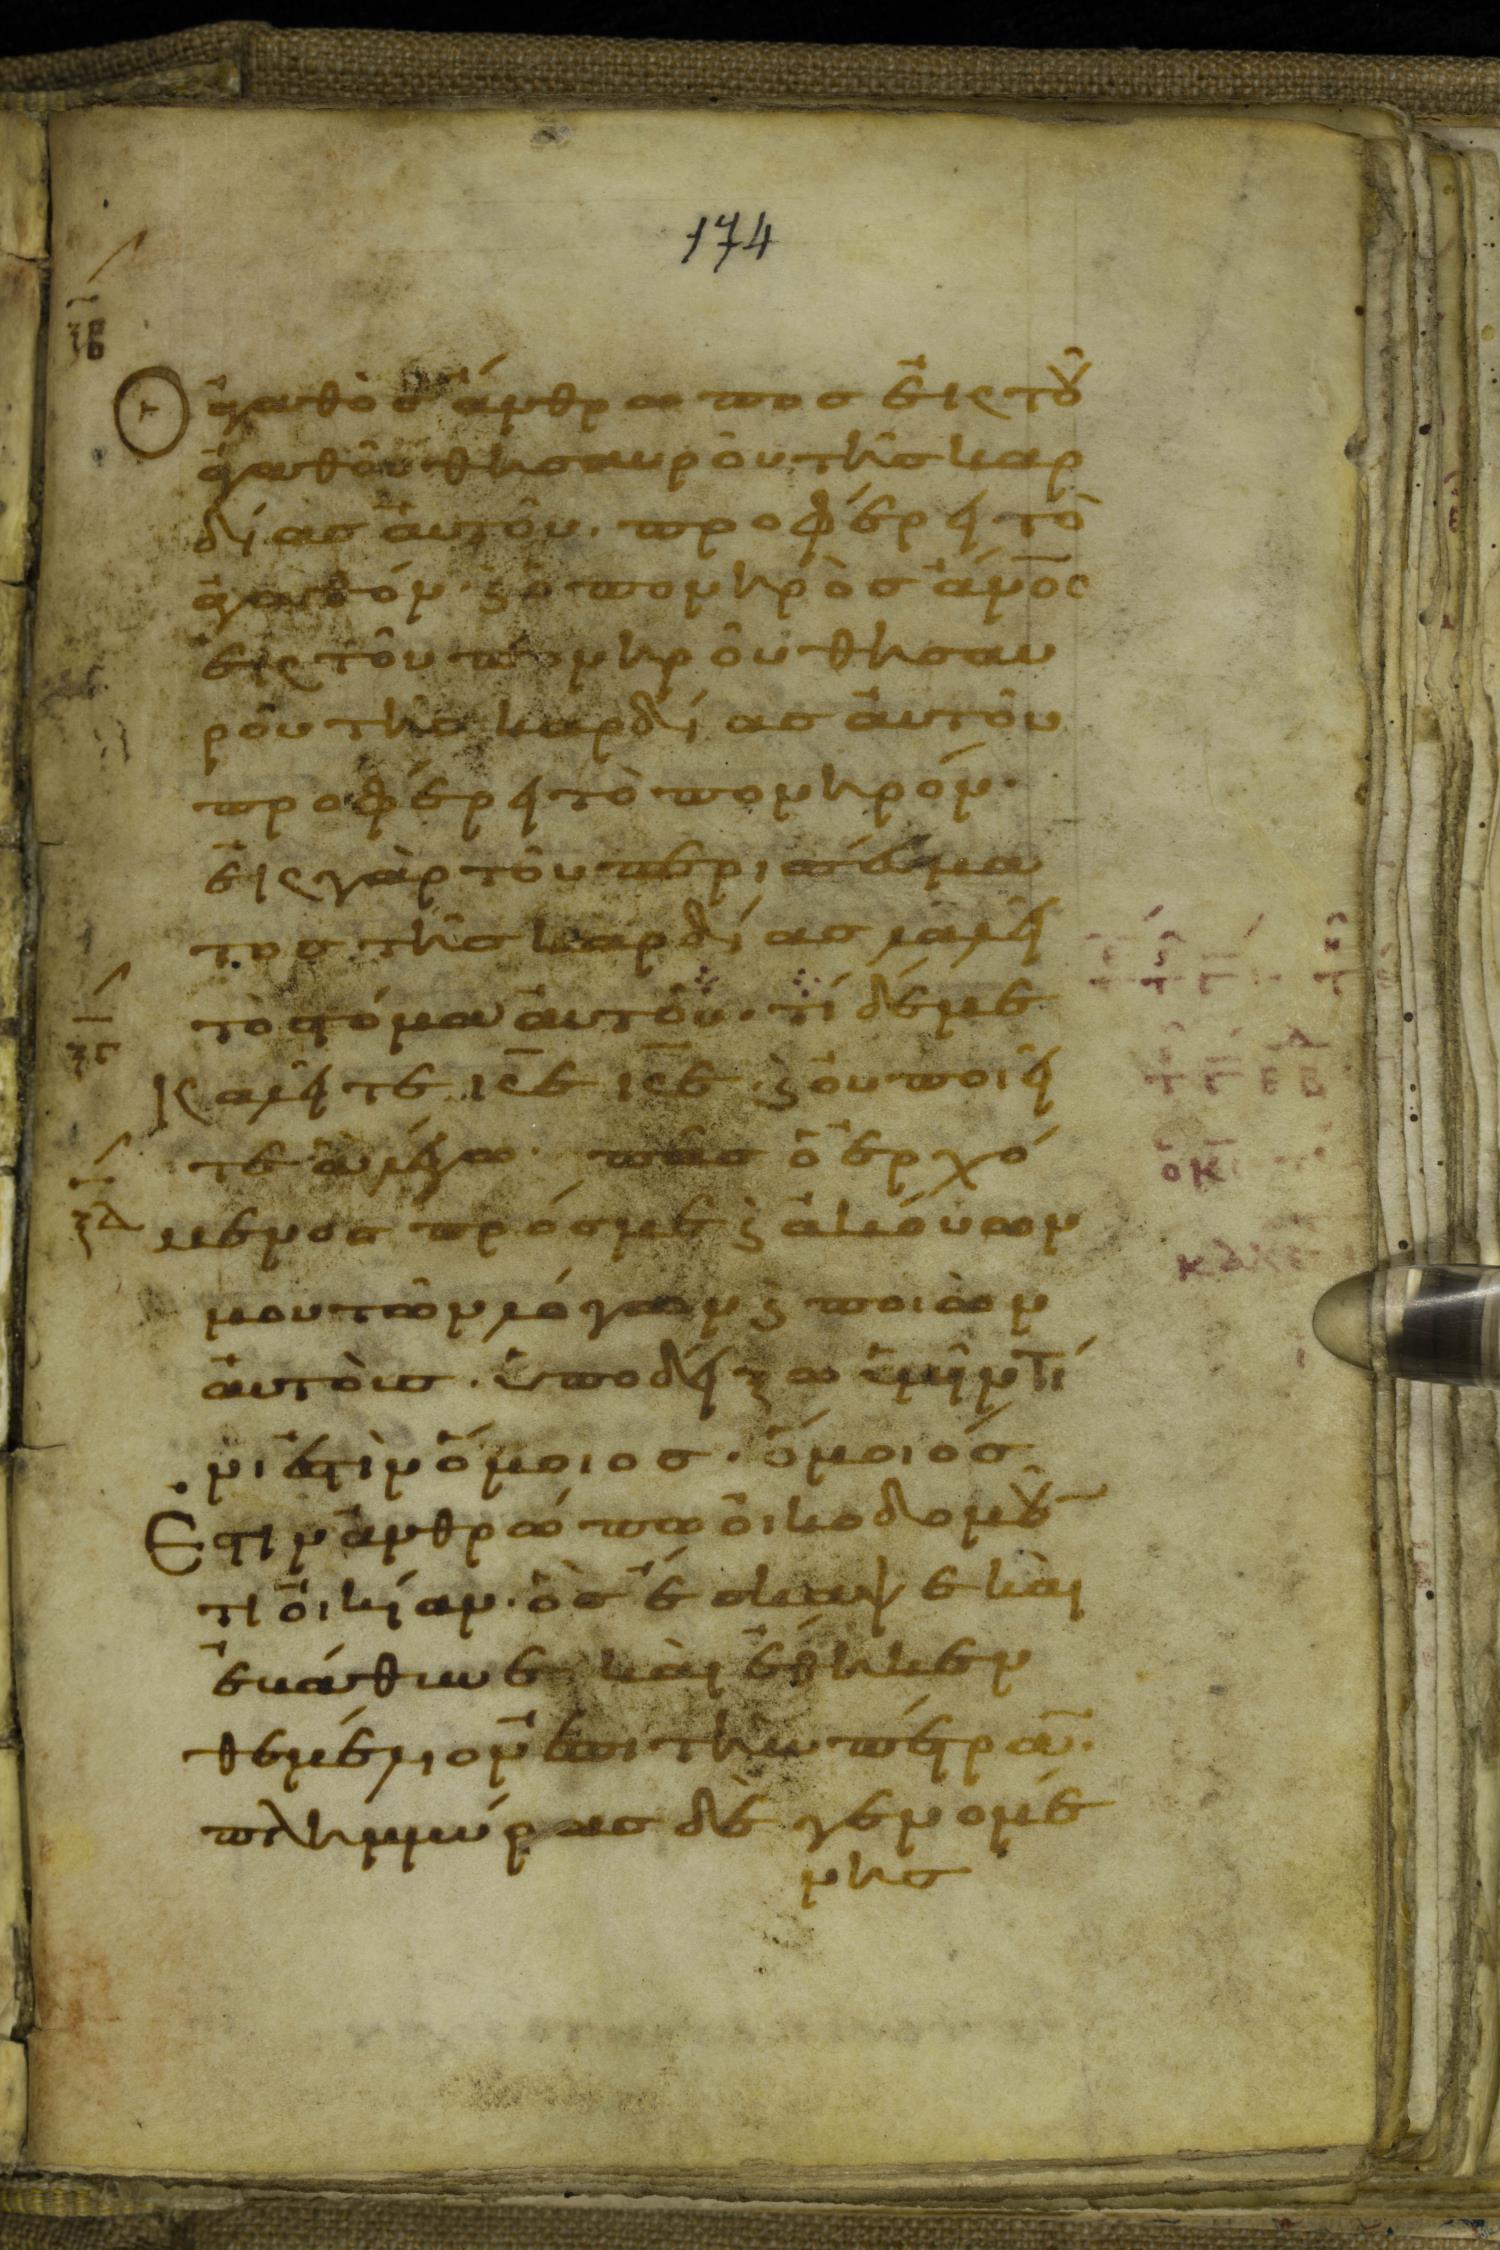 174
ξβ
Ὁ ἀγαθὸσ ἄνθρωποσ ἐις τοῦ
ἀγαθοῦ θησαυροῦ τῆσ καρ
δίασ ἀυτοῦ· προφέρει τὸ
ἀγαθόν· ϗ ὁ πονηρὸσ ἄνο̅σ
ἐις τοῦ πονηροῦ θησαυ
ροῦ τῆσ καρδίασ ἀυτοῦ
προφέρει τὸ πονηρόν·
ἐις γὰρ τοῦ περισέυμα
τοσ τῆσ καρδίασ λαλεῖ
τὸ στόμα ἀυτοῦ· τί δέ με
ξγ
Καλεῖτε κ̅ε κ̅ε· ϗ ὀυ ποιεῖ
τε ἃ λέγω· πᾶσ ὁ ἐρχό
ξδ
μενοσ πρόσ με ϗ ἀκόυων
μου τῶν λόγων ϗ ποιῶν
ἀυτὸυσ· ὑποδείξω ὑμῖν τί
νι ἐστὶν ὅμοιοσ· ὅμοιόσ
Ἐστιν ἀνθρώπω ὀικοδομοῦ
τι ὀικίαν· ὃσ ἔσκαψε κὰι
ἐβάθυνε κὰι ἔθηκεν
θεμέλιον ἐπι τὴν πέτραν·
πλημμύρασ δὲ γενομέ
νησ